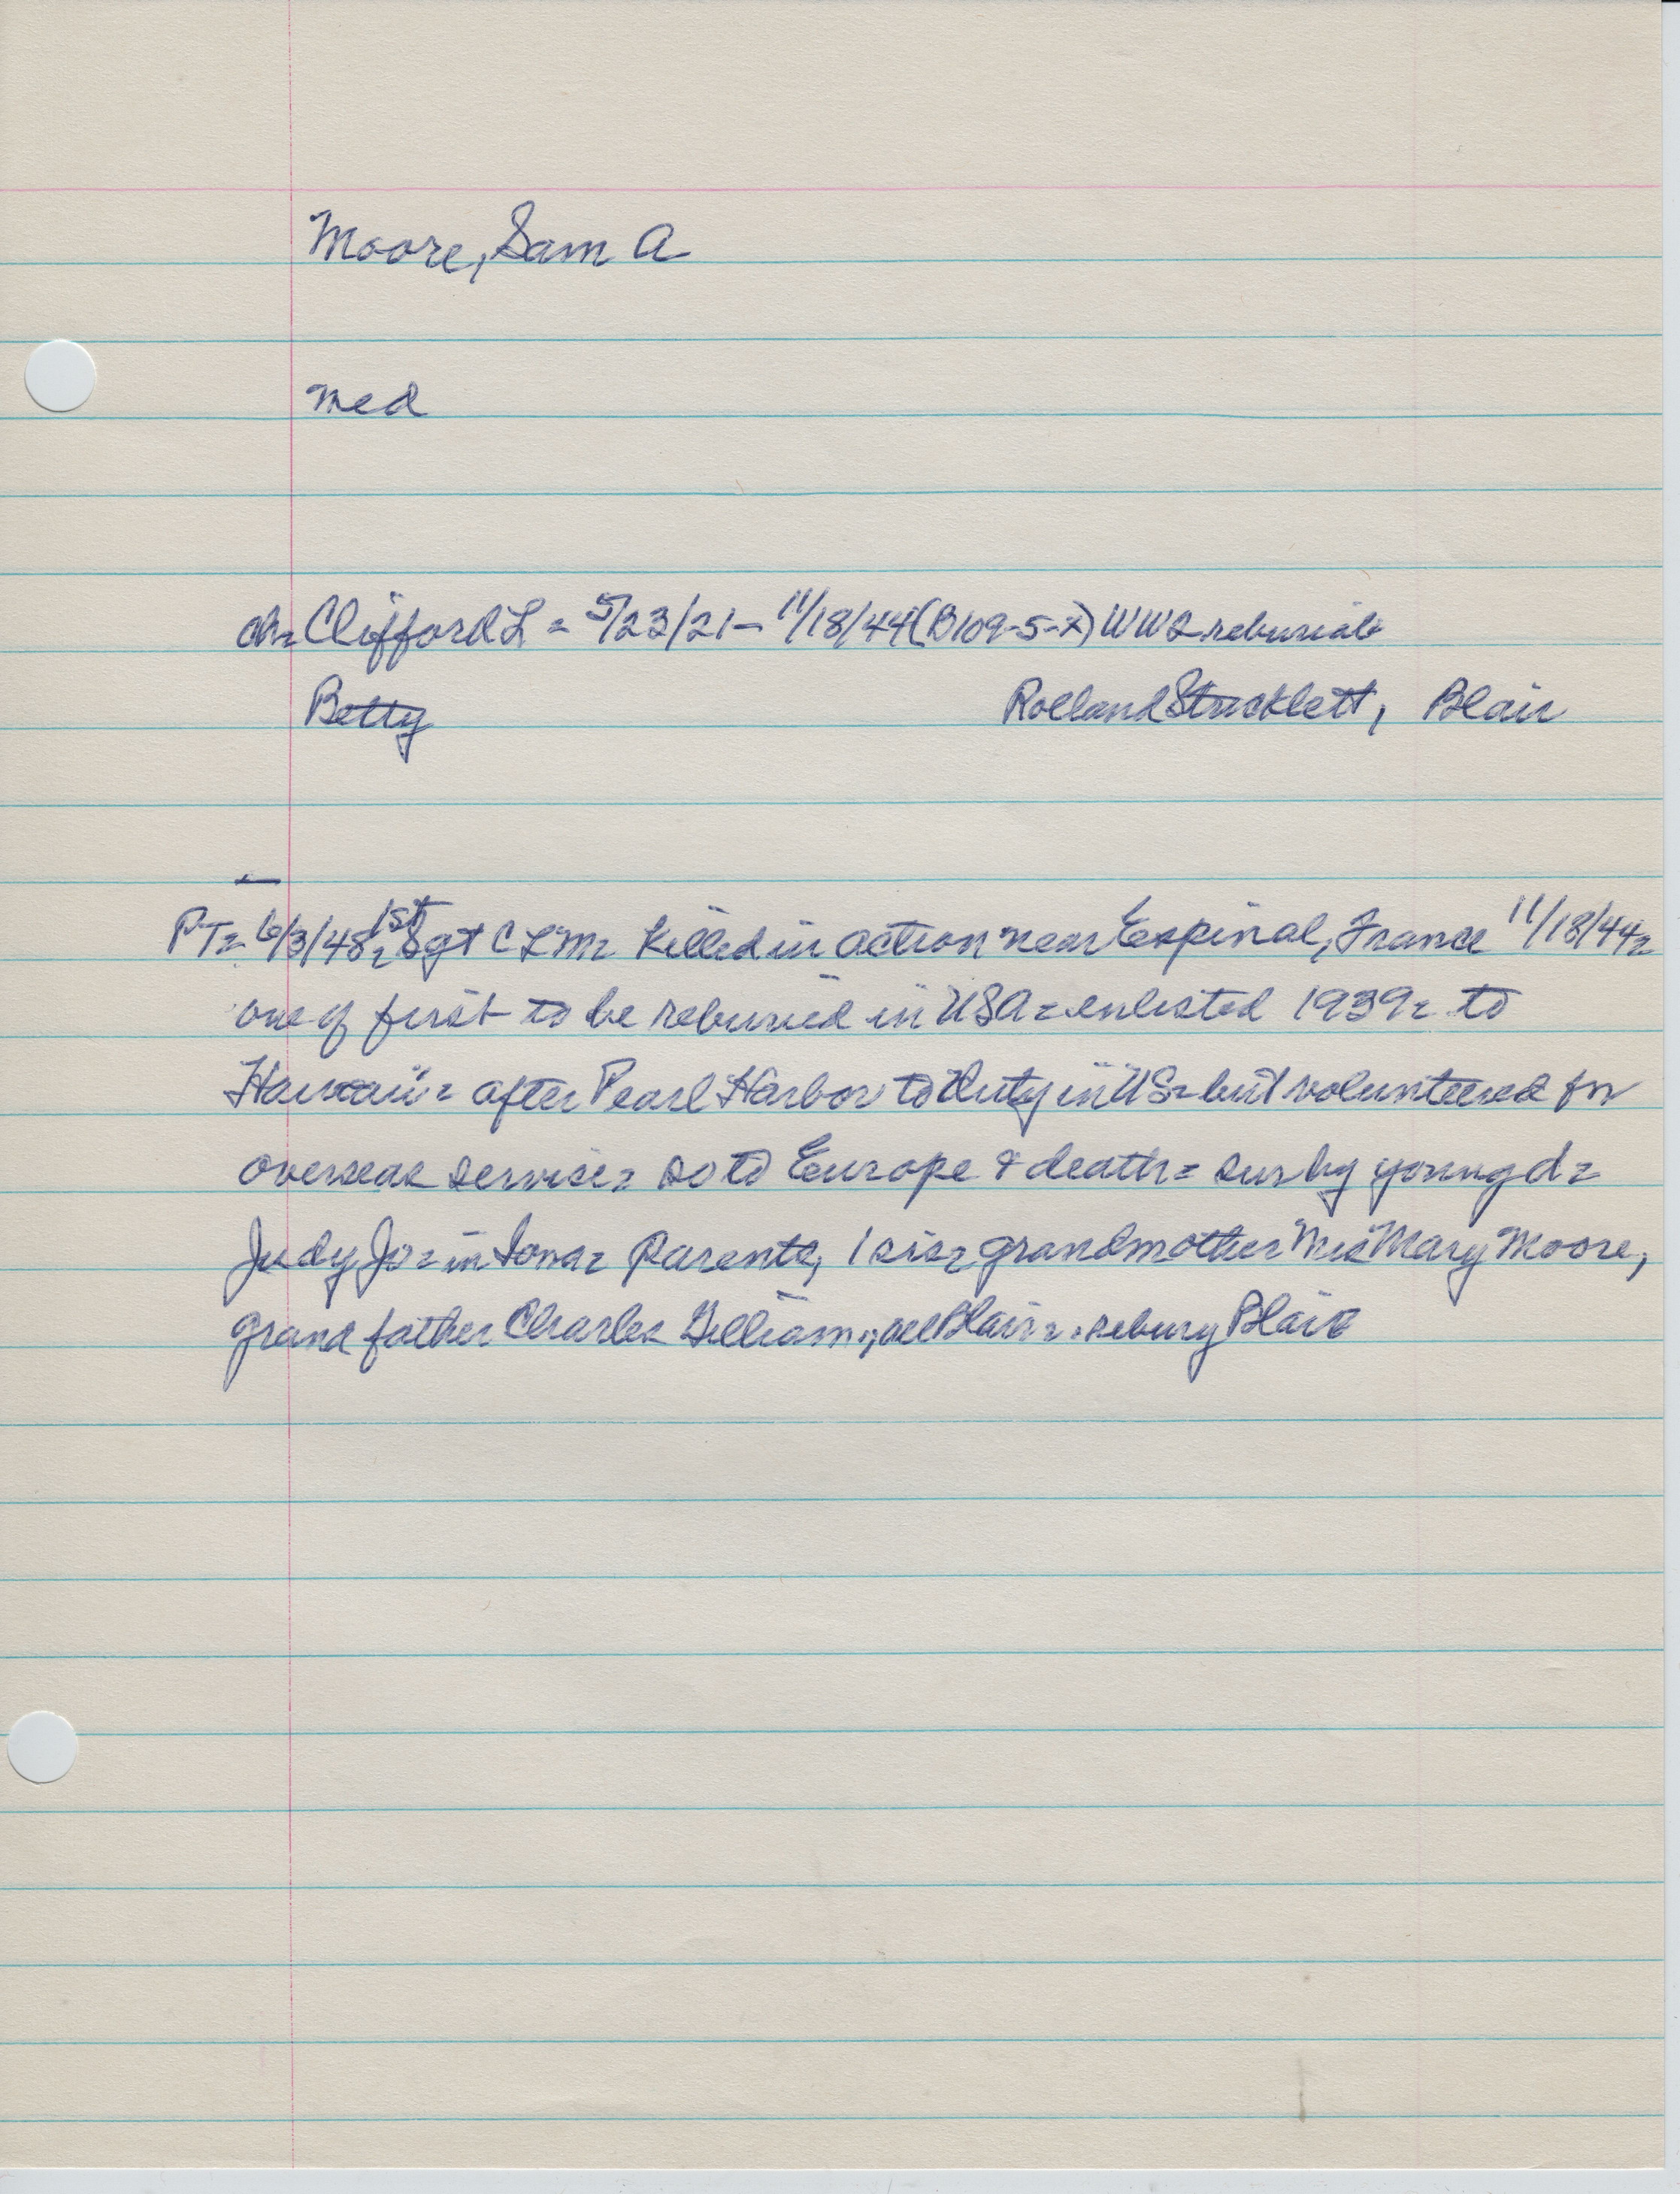 Moore, Sam A
med
ch= Clifford L = 5/23/21 - 11/18/44 (B109-5-x) WW2 reburial
Betty Rolland Stricklett, Blair
PT= 6/3/48= 1st Sgt C L M= Killed in action near Espinal, France 11/18/44=
one of first to be reburied in USA= enlisted 1939= to
Hawaii= after Pearl Harbor to duty in US= but volunteered for
overseas service= so to Europe & death= sur by young d=
Judy Jo= in Iowa= Parents, 1 sis= grandmother Mrs Mary Moore,
grand father Charles Gilliam, all Blair= rebury Blair